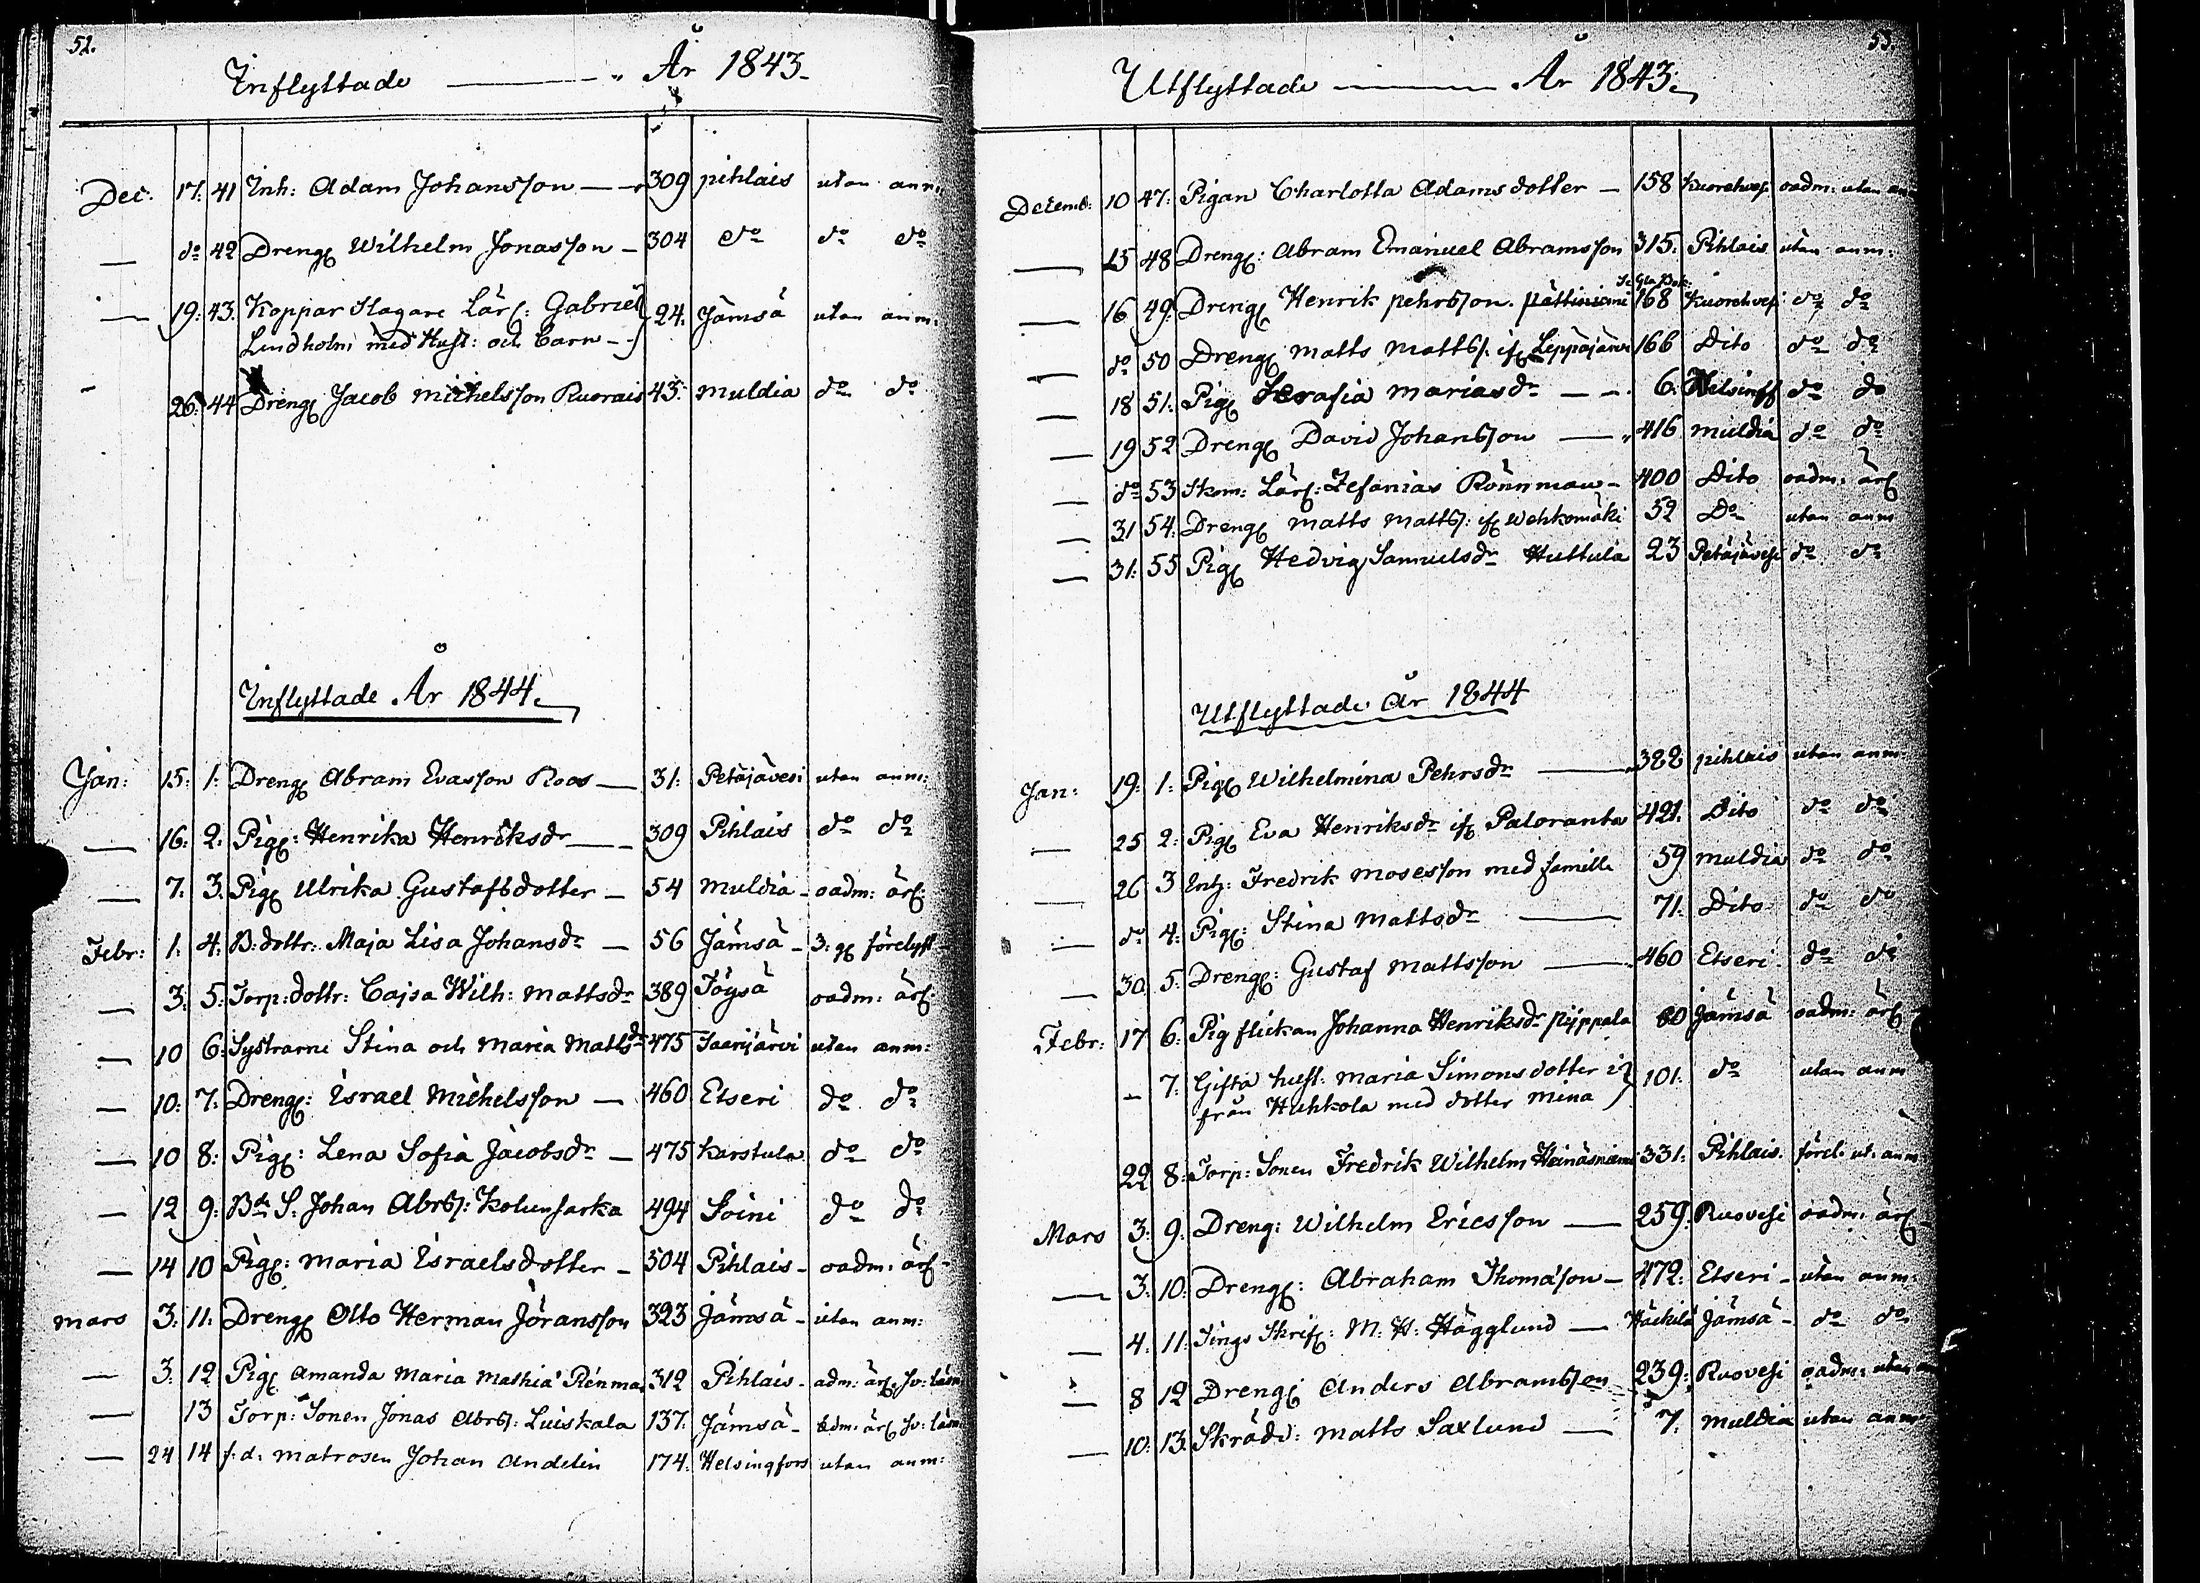 52.
Inflyttade — År 1843.
Dec: 17. 41 Inh: Adam Johansson — 309 pihlais utan anm:
— do 42 Dreng Wilhelm Jonasson — 304 do do do
— 19. 43. Koppar Slagare Lär: Gabriel 24. Jämsä utan anm:
Lindholm med Hust: och barn
26. 44 Dreng Jacob Michelsson Ruorais 43. Muldia do do
Inflyttade År 1844.
Jan: 15. 1. Dreng Abram Evasson Roos — 31. Petäjävesi utan anm:
— 16. 2. Pig: Henrika Henriksdr — 309 Pihlais do do
— 7. 3. Pig Ulrika Gustafsdotter — 54 Muldia oadm: ärl:
Febr: 1. 4. B: dottr: Maja Lisa Johansdr — 56 Jämsä 3: förelyst
— 3. 5. Torp: dottr: Cajsa Wilh: Mattsdr 389 Töysä oadm: ärl:
— 10 6. Systrarne Stina och Maria Mattsdr 475 Saarijärvi utan anm:
— 10. 7. Dreng: Israel Michelsson — 460 Etseri do do
— 10 8. Pig: Lena Sofia Jacobsdr — 475 Karstula do do
— 12 9. Bde S: Johan Abrss: Kolunsarka 494 Soini do do
— 14 10 Pig: Maria Israelsdotter — 304 Pihlais oadm: ärl
Mars 3. 11. Dreng Otto Herman Jöransson 323 Jämsä utan anm:
— 3. 12 Pig Amanda Maria Mathia 312 Pihlais adm: ärl
— 13 Torp: Sonen Jonas Abrss: Luiskala 137. Jämsä
— 24 14 f: d: Matrosen Johan Andelin 174. Helsingfors utan anm:
53.
Utflyttade — År 1843.
Decemb: 10 47. Pigan Charlotta Adamsdotter — 158 Kuorehves oadm: utan
— 15 48 Dreng: Abram Emanuel Abramsson 315. Pihlais utan anm:
— 16 49. Dreng Henrik Pehrsson 168 Kuorehvesi do do
— do 50 Dreng Matts Mattss: if Leppäjärvi 166 Dito do do
— 18 51. Pig Serafia Mariasdr — 6. Helsinff do do
— 19 52 Dreng David Johansson — 416 Muldia do do
— do 53 Skom: Lär: Zefanias Rönnman — 400 Dito oadm: ärl
— 31 54. Dreng Matts Mattss: if Wehkomäki 52 Do utan anm
— 31. 55 Pig Hedvig Samuelsdr Huttula 23 Petäjävesi do do
Utflyttade År 1844
Jan: 19. 1. Pig Wilhelmina Pehrsdr — 322 pihlais utan anm
— 25 2. Pig Eva Henriksdr if Paloranta 421. Dito do do
— 26 3 Fredrik Mosesson med famille 59 Muldia do do
— do 4. Pig: Stina Mattsdr — 71. Dito do do
— 30. 5. Dreng: Gustaf Mattsson — 460 Etseri do do
Febr: 17 6. Pig flickan Johanna Henriksdr Pijppola 60 Jämsä oadm: ärl
— 7. Gifta hust: Maria Simonsdotter 101. do utan anm
från Huhkola med dotter Mina
22 8. Torp: Sonen Fredrik Wilhelm Heinäsniemi 331. Pihlais förel: ut: anm
Mars 3. 9. Dreng: Wilhelm Ericsson — 259. Ruovesi oadm: ärl
— 3. 10. Dreng: Abraham Thomasson — 472. Etseri utan anm:
— 4. 11. Tings Skrif: M: H: Hägglund — Häckilä Jämsä do do
— 8 12 Dreng Anders Abramsson 239. Ruovesi oadm: utan
— 10. 13. Skräd: Matts Saxlund — 7. Muldia utan anm